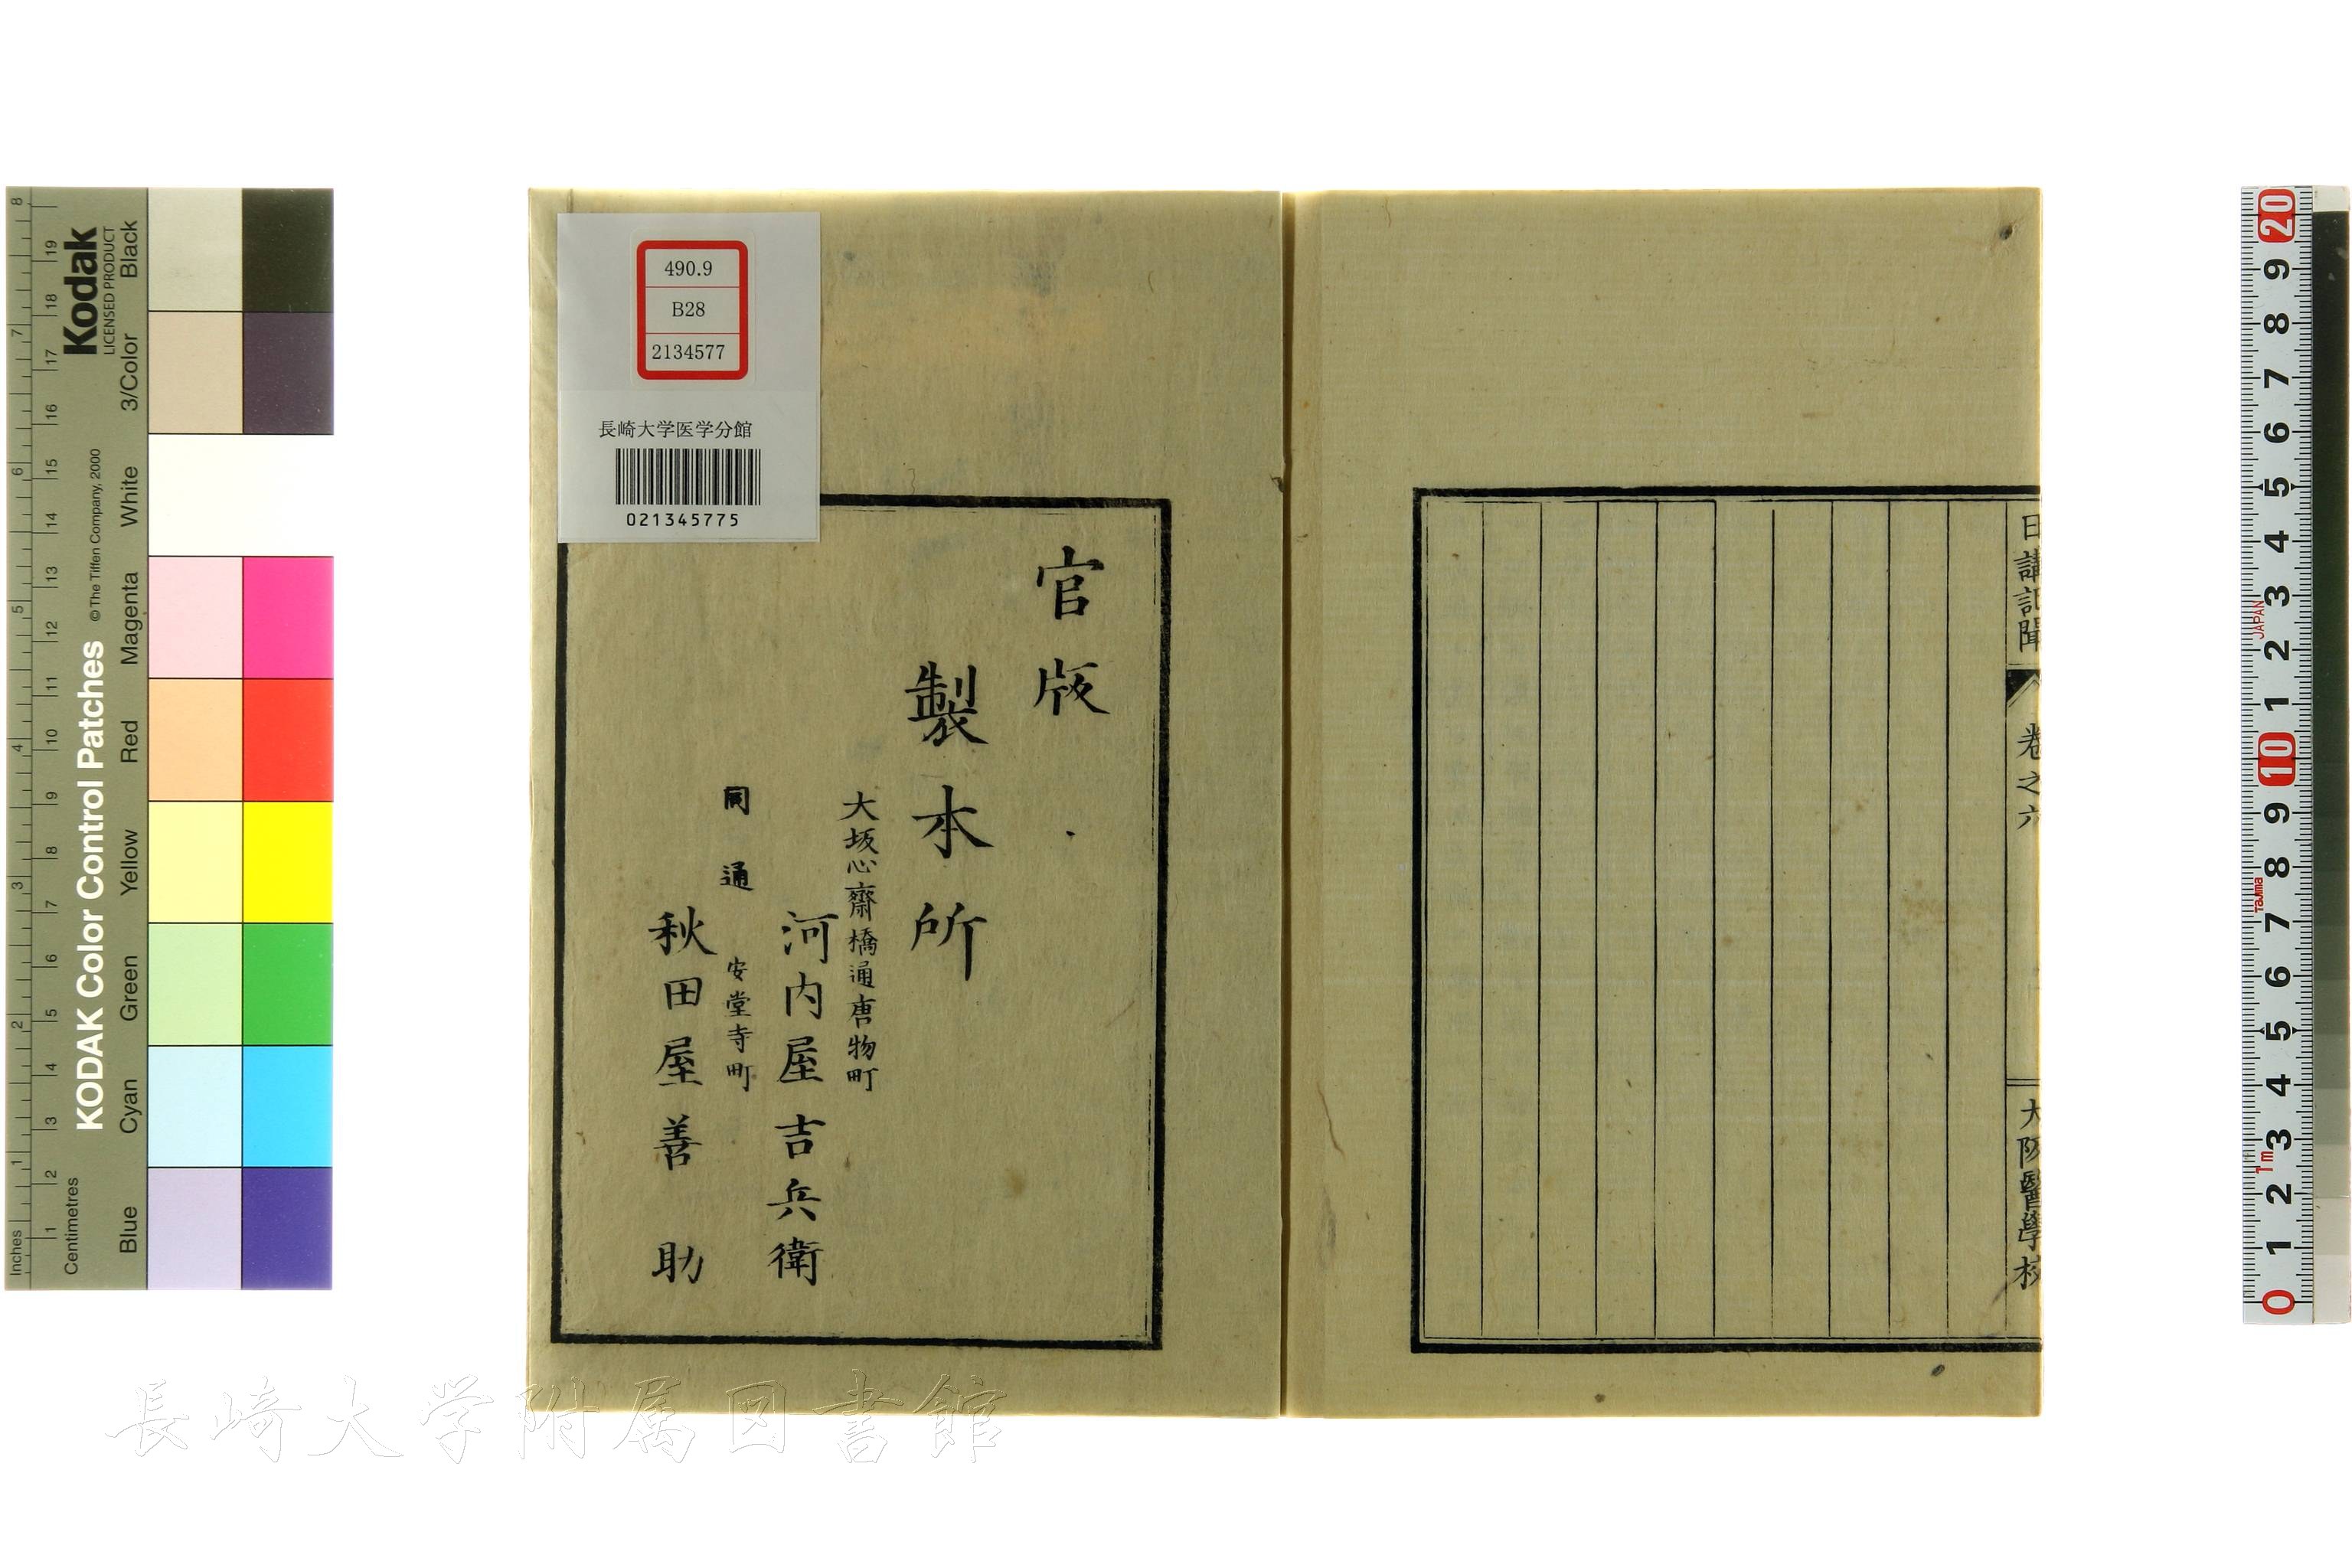 日講記聞
卷之六
大阪醫學校
官版
製本所
大坂心齋橋通唐物町
河内屋吉兵衛
同通安堂寺町
秋田屋善助
490.9
B28
2134577
長崎大学医学分館
021345775
長崎大学附属図書館
Kodak
LICENSED PRODUCT
KODAK Color Control Patches
©The Tiffen Company, 2000
Black
3/Color
White
Magenta
Red
Yellow
Green
Cyan
Blue
Inches
1 2 3 4 5 6 7 8
Centimetres
1 2 3 4 5 6 7 8 9 10 11 12 13 14 15 16 17 18 19
20
9
8
7
6
5
4
3
2
1
10
9
8
7
6
5
4
3
2
1
0
JAPAN
Tajima
1m